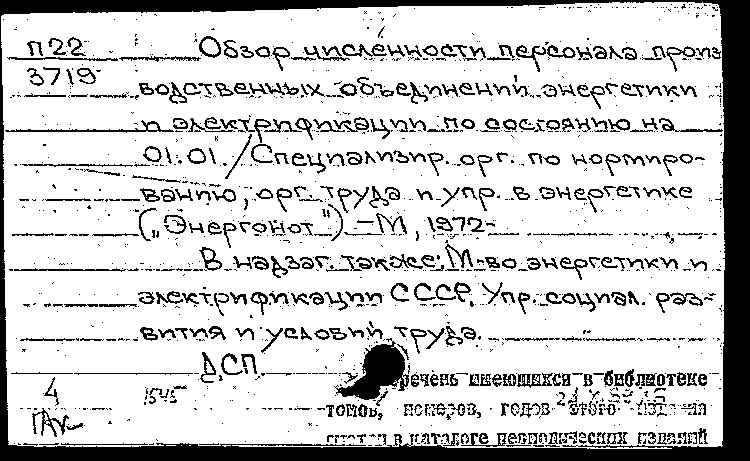 п22 Обзор численности персонала произ
3719
водственных объединений энергетики
и электрификации по состоянию на
01.01./Специализир. орг. по нормиро-
ванию, орг. труда и упр. в энергетике
(„Энергонот") -М, 1972-
В надзаг. также: М-во энергетики и
электрификации СССР, Упр. социал. раз-
вития и условий труда.
ДСП.
речень имеющихся в библиотеке
4 1545
томов, номеров, годов этого издания
ГАК
в каталоге периодических изданий